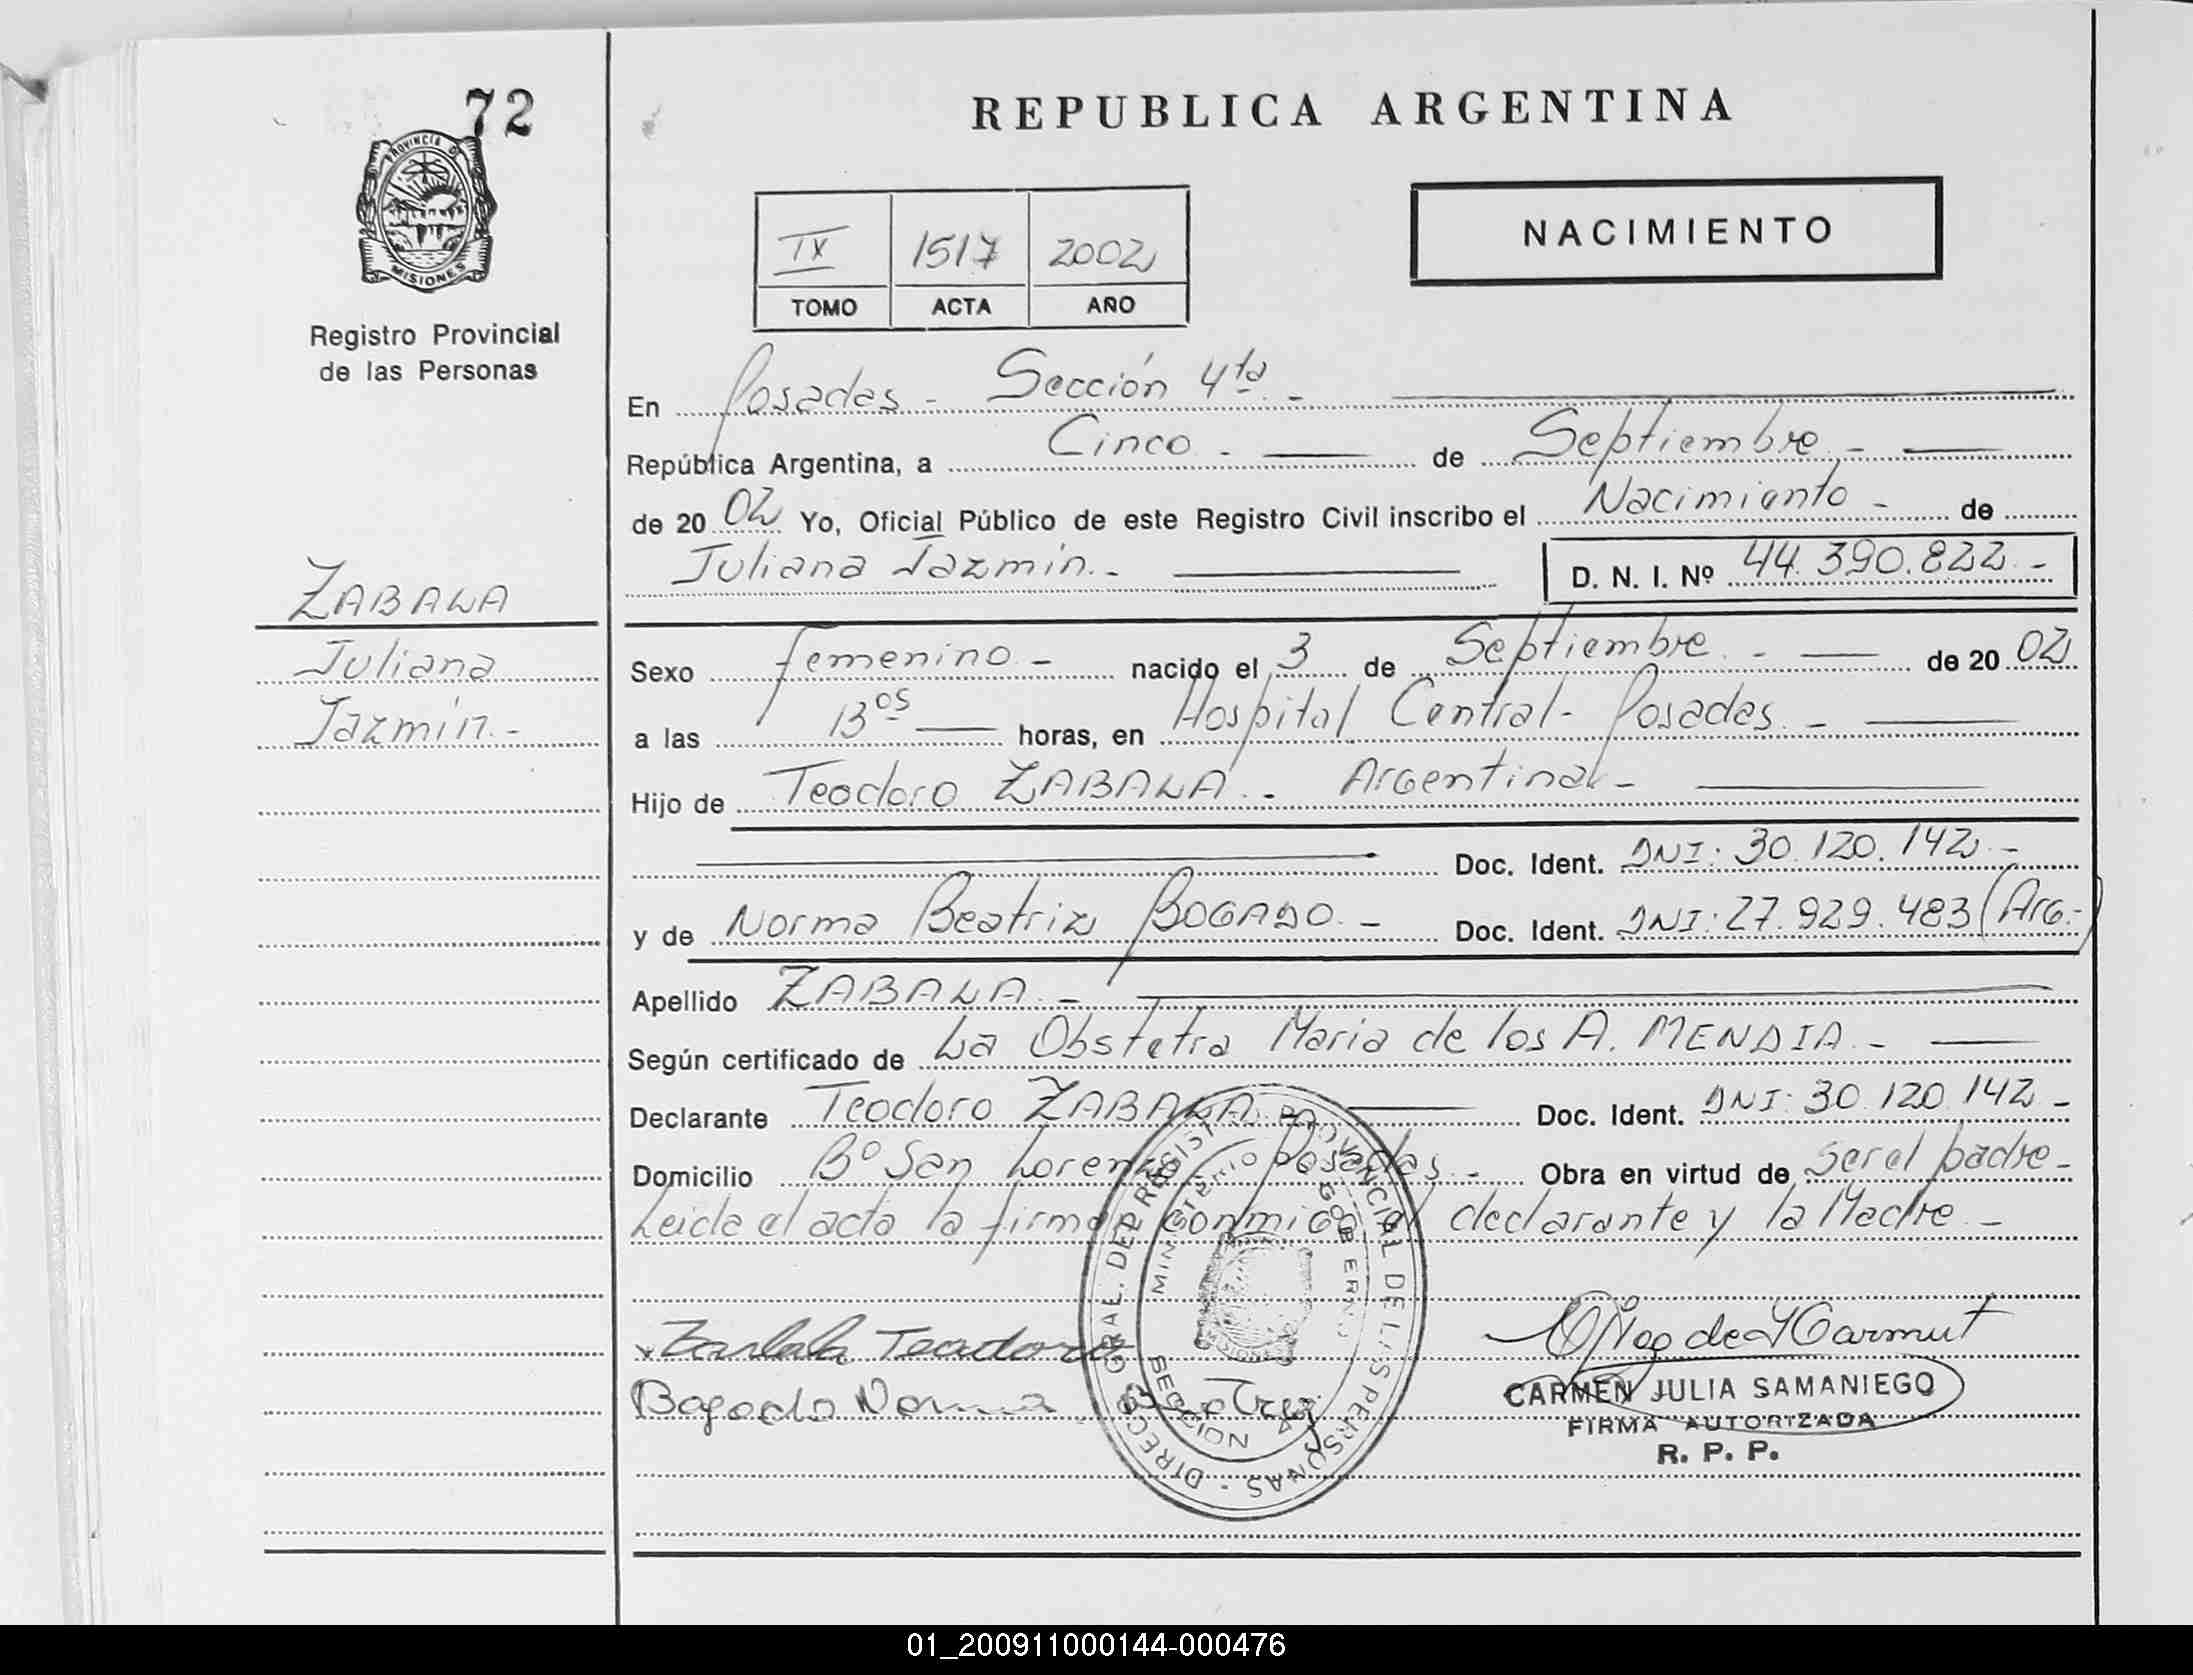 72
PROVINCIA DE
MISIONES
Registro Provincial
de las Personas
ZABALA
Juliana
Jazmín.-
REPUBLICA ARGENTINA
NACIMIENTO
IX 1517 2002
TOMO ACTA AÑO
En Posadas - Sección 4ta. -
República Argentina, a Cinco. - de Septiembre. -
de 2002 Yo, Oficial Público de este Registro Civil inscribo el Nacimiento - de
Juliana Jazmín.- D. N. I. Nº 44.390.822.-
Sexo femenino. - nacido el 3 de Septiembre. - de 2002
a las 13os horas, en Hospital Central- Posadas. -
Hijo de Teodoro ZABALA. - Argentina -
Doc. Ident. DNI: 30.120.142.-
y de Norma Beatriz BOGADO. - Doc. Ident. DNI: 27.929.483 (Arg.-)
Apellido ZABALA. -
Según certificado de La Obstetra Maria de los A. MENDIA. -
Declarante Teodoro ZABALA Doc. Ident. DNI: 30.120.142 -
Domicilio Bº San Lorenzo Posadas. - Obra en virtud de ser el padre -
Leida el acta la firma conmigo el declarante y la Madre. -
Teodoro
Bogado Norma Beatriz
DIREC. GRAL. DEL REGISTRO PROVINCIAL DE LAS PERSONAS -
MINISTERIO GOBIERNO
MISIONES
SECCION 4
CARMEN JULIA SAMANIEGO
FIRMA AUTORIZADA
R. P. P.
01_200911000144-000476